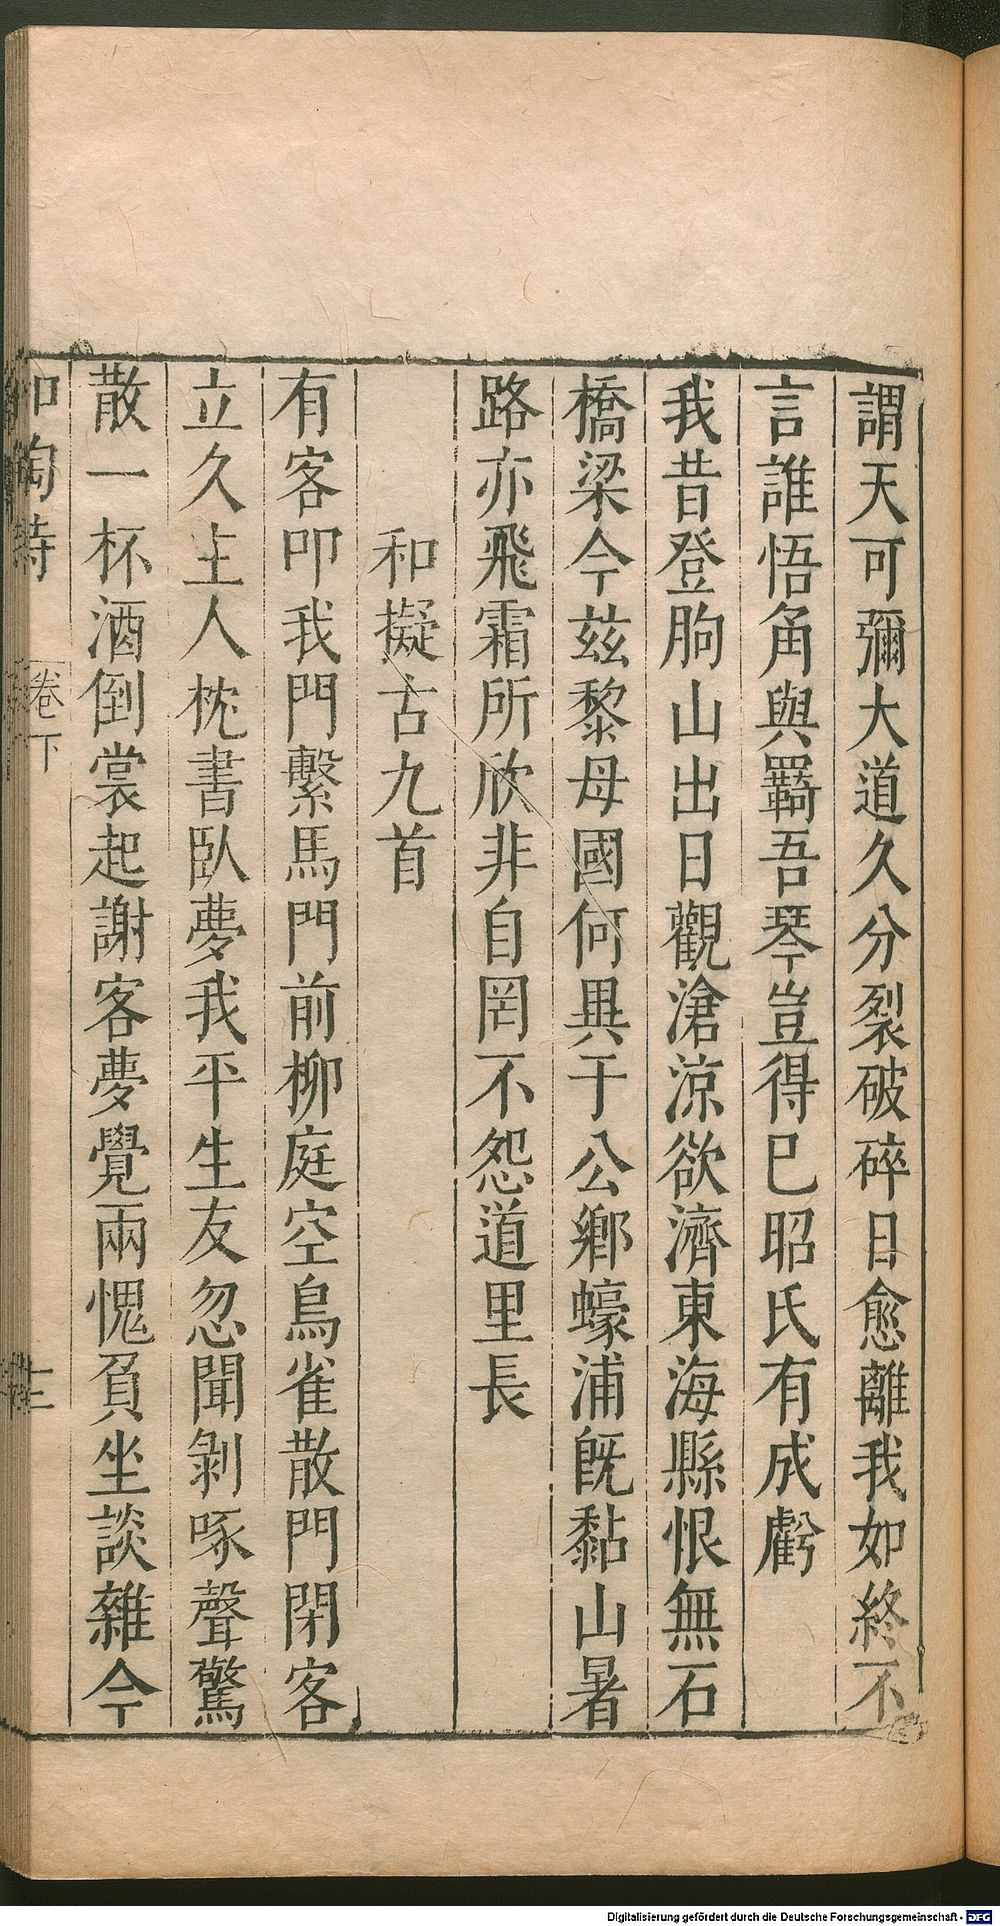 謂天可彌大道久分裂破碎日愈離我如終不
言誰悟角與羈吾琴豈得已昭氏有成虧
我昔登朐山出日觀滄涼欲濟東海縣恨無石
橋梁今茲黎母國何異于公鄉蠔浦旣黏山暑
路亦飛霜所欣非自罔不怨道里長
和擬古九首
有客叩我門繫馬門前柳庭空鳥雀散門閉客
立久主人枕書臥夢我平生友忽聞剝啄聲驚
散一杯酒倒裳起謝客夢覺兩愧負坐談雜今
和陶詩
卷下
十三
Digitalisierung gefördert durch die Deutsche Forschungsgemeinschaft - DFG